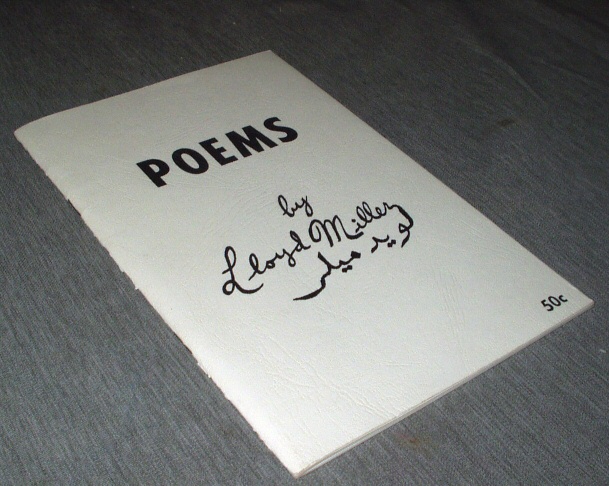 POEMS
by
Lloyd Miller
لوید میلر
50c